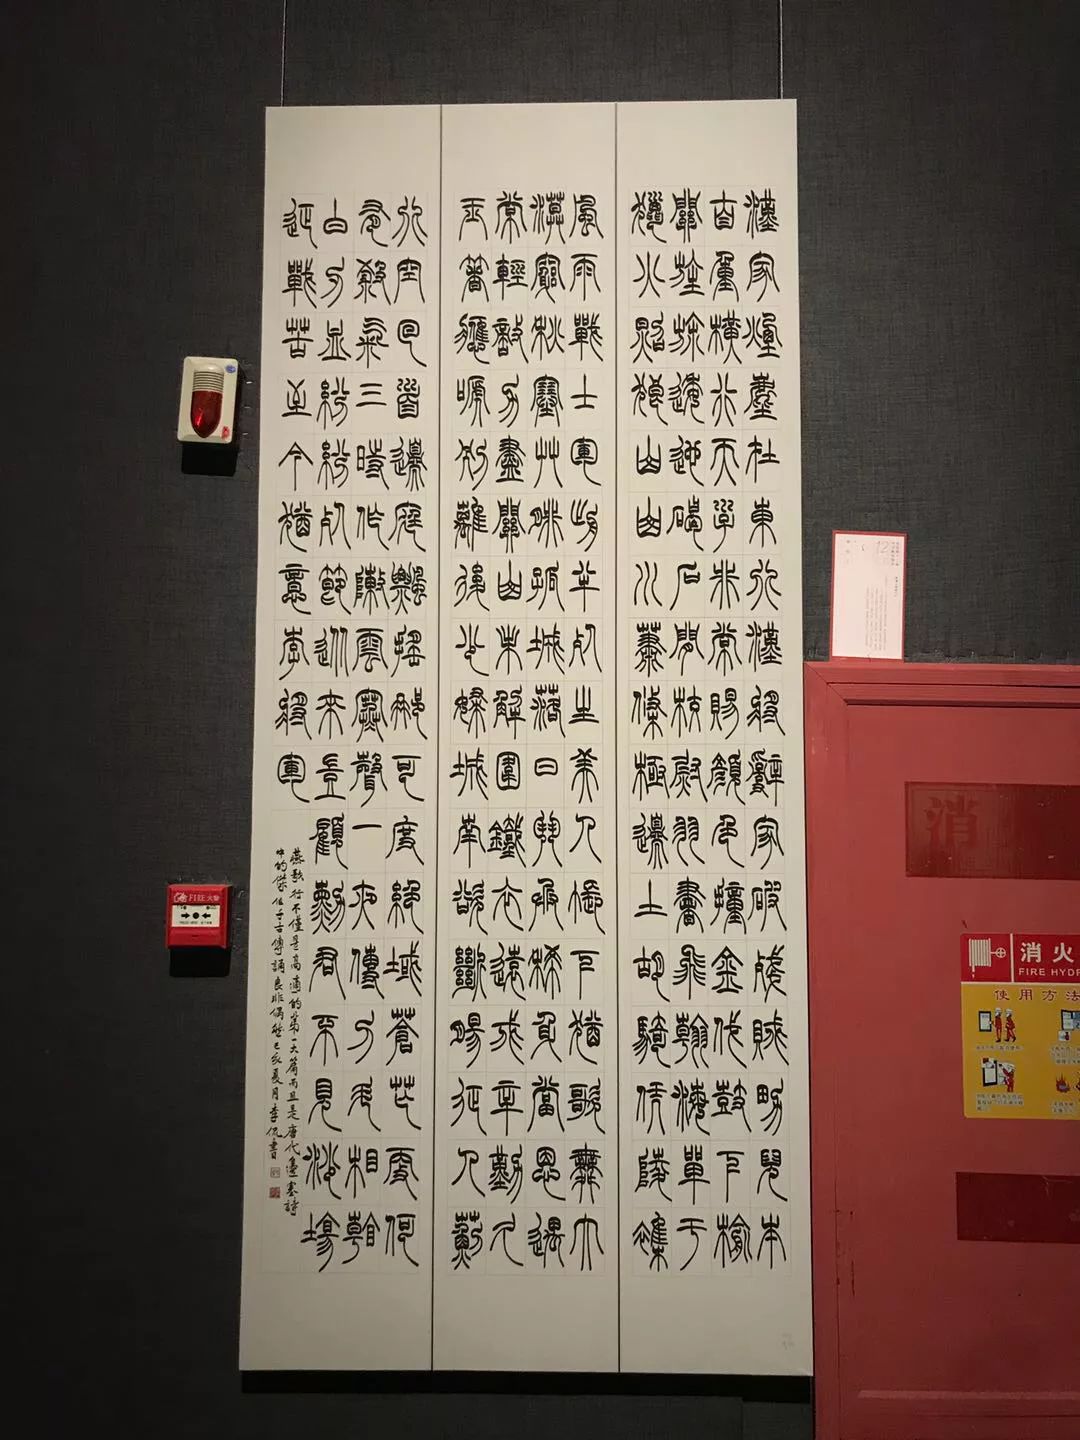 漢家煙塵在東北漢將辭家破殘賊男兒本
自重橫行天子非常賜顏色摐金伐鼓下榆
關旌旆逶迤碣石間校尉羽書飛瀚海單于
獵火照狼山山川蕭條極邊土胡騎憑陵雜
風雨戰士軍前半死生美人帳下猶歌舞大
漠窮秋塞草腓孤城落日鬥兵稀身當恩遇
常輕敵力盡關山未解圍鐵衣遠戍辛勤久
玉箸應啼別離後少婦城南欲斷腸征人薊
北空回首邊庭飄颻那可度絕域蒼茫更何
有殺氣三時作陣雲寒聲一夜傳刁斗相看
白刃血紛紛死節從來豈顧勳君不見沙場
征戰苦至今猶憶李將軍
燕歌行不僅是高適的第一大篇而且是唐代邊塞詩
中的傑作千古傳誦良非偶然己亥夏月李侃書
FIRE 火警
消
消火
FIRE HYDR
使用方法